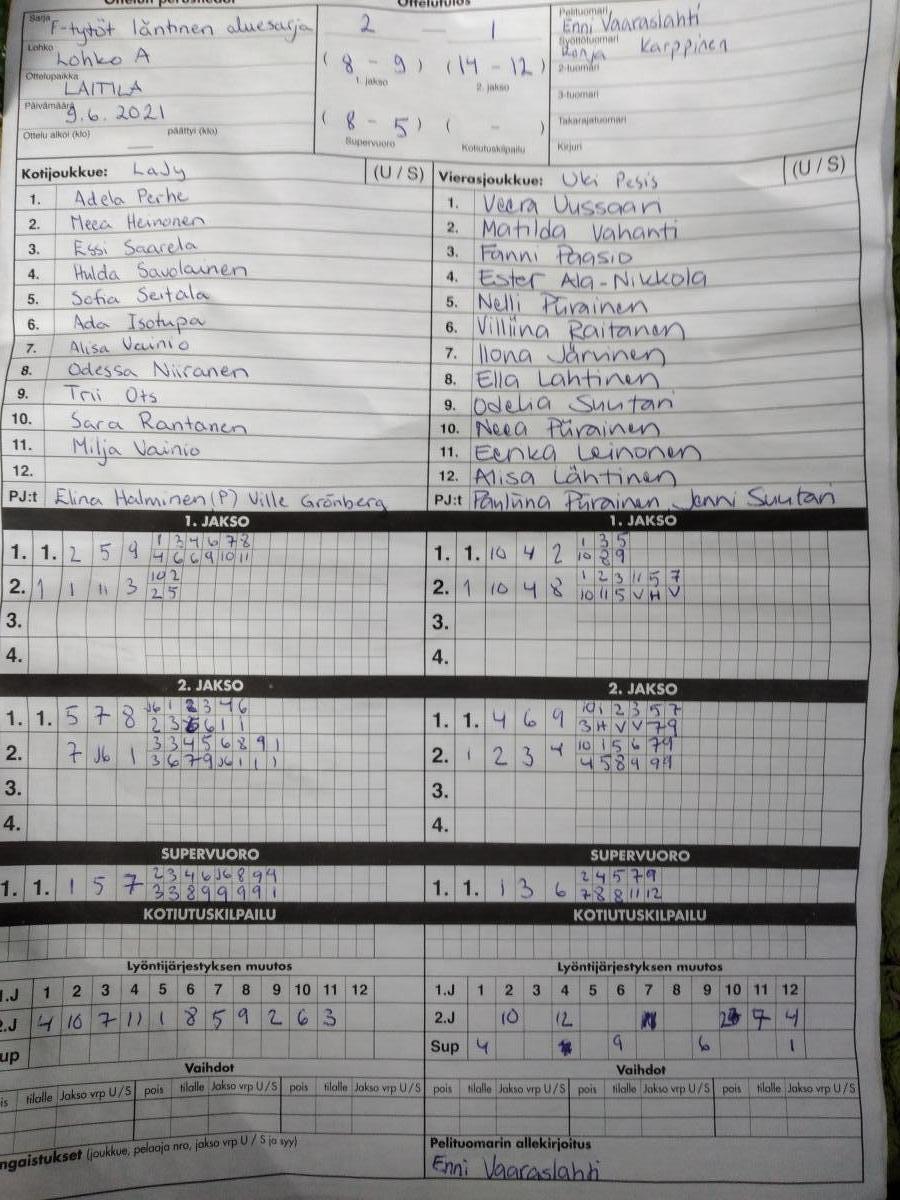 Ottelun perustiedot
Ottelutulos
Sarja F-tytöt läntinen aluesarja
2 — 1
Pelituomari Enni Vaaraslahti
Lohko Lohko A
(8 - 9) (14 - 12)
1. jakso 2. jakso
Syöttötuomari Ronja Karppinen
Ottelupaikka LAITILA
2-tuomari
3-tuomari
Päivämäärä 9.6.2021
(8 - 5) ( - )
Supervuoro Kotiutuskilpailu
Takarajatuomari
Ottelu alkoi (klo) — päättyi (klo)
Kirjuri
Kotijoukkue: LaJy (U / S) Vierasjoukkue: Uki Pesis (U / S)
1. Adela Perhe 1. Veera Uussaari
2. Meea Heinonen 2. Matilda Vahanti
3. Essi Saarela 3. Fanni Paasio
4. Hulda Savolainen 4. Ester Ala-Nikkola
5. Sofia Seitala 5. Nelli Piirainen
6. Ada Isotupa 6. Villiina Raitanen
7. Alisa Vainio 7. Ilona Järvinen
8. Odessa Niiranen 8. Ella Lahtinen
9. Trii Ots 9. Odelia Suutari
10. Sara Rantanen 10. Neea Piirainen
11. Milja Vainio 11. Eerika Leinonen
12. 12. Alisa Lähtinen
PJ:t Elina Halminen (P) Ville Grönberg PJ:t Pauliina Piirainen Jenni Suutari
1. JAKSO 1. JAKSO
1 3 4 6 7 8 1 3 5
1. 1. 2 5 9 4 6 6 9 10 11 1. 1. 10 4 2 10 8 9
10 2 1 2 3 11 5 7
2. 1 1 11 3 2 5 2. 1 10 4 8 10 11 5 V H V
3. 3.
4. 4.
2. JAKSO 2. JAKSO
10 1 2 3 5 7
1. 1. 5 7 8 1. 1. 4 6 9 3 H V V 7 9
3 3 4 5 6 8 9 1
2. 7 J6 1 3 6 7 9 J6 1 1 1 2. 1 2 3 4
3. 3.
4. 4.
SUPERVUORO SUPERVUORO
2 3 4 6 J6 8 9 4 2 4 5 7 9
1. 1. 1 5 7 3 3 8 9 9 9 9 1 1. 1. 1 3 6 7 8 8 11 12
KOTIUTUSKILPAILU KOTIUTUSKILPAILU
Lyöntijärjestyksen muutos Lyöntijärjestyksen muutos
1.J 1 2 3 4 5 6 7 8 9 10 11 12 1.J 1 2 3 4 5 6 7 8 9 10 11 12
2.J 4 10 7 11 1 8 5 9 2 6 3 2.J 10 12 7 4
Sup Sup 4 9 6 1
Vaihdot Vaihdot
pois tilalle Jakso vrp U / S pois tilalle Jakso vrp U / S pois tilalle Jakso vrp U / S pois tilalle Jakso vrp U / S pois tilalle Jakso vrp U / S pois tilalle Jakso vrp U / S
Rangaistukset (joukkue, pelaaja nro, jakso vrp U / S ja syy)
Pelituomarin allekirjoitus
Enni Vaaraslahti